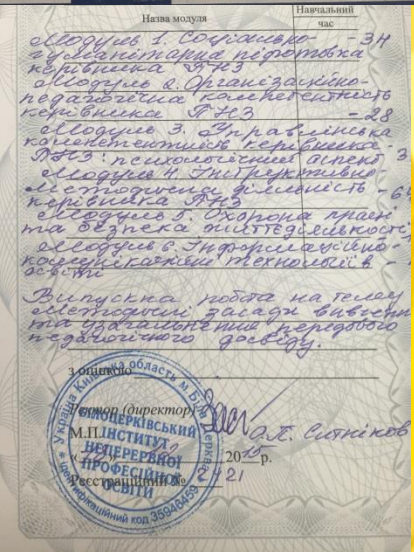 Назва модуля
Навчальний
час
Модуль 1. Соціально- - 34
гуманітарна підготовка
керівника ПНЗ
Модуль 2. Організаційно-
педагогічна компетентність
керівника ПНЗ - 28
Модуль 3. Управлінська
компетентність керівника
ПНЗ: психологічний аспект 3
Модуль 4. Інструктивно-
методична діяльність - 6
керівника ПНЗ
Модуль 5. Охорона праці
та безпека життєдіяльності
Модуль 6. Інформаційно-
комунікаційні технології в -
освіті
Випускна робота на тему
Методичні засади вивчення
та узагальнення передового
педагогічного досвіду.
з оцінкою
Ректор (директор)
М.П.
О.П. Ситніков
2015 р.
Реєстраційний № 2421
Україна Київська область м. Біла Церква
БІЛОЦЕРКІВСЬКИЙ
ІНСТИТУТ
НЕПЕРЕРВНОЇ
ПРОФЕСІЙНОЇ
ОСВІТИ
Ідентифікаційний код 35946459